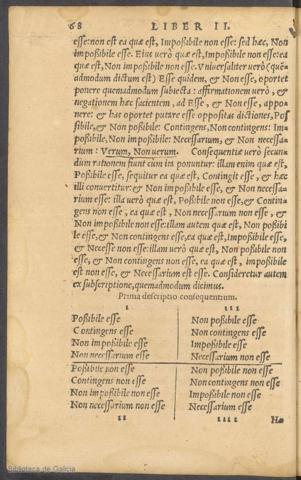 68 LIBER II.
esse: non est ea quæ est, Impoßibile non esse: sed hæc, Non
impoßibile esse. Eius verò quæ est, Impoßibile non esse: ea
quæ est, Non impoßibile non esse. Vniuersaliter verò (quē
admodum dictum est) Esse quidem, & Non esse, oportet
ponere quemadmodum subiecta: affirmationem verò, &
negationem hæc facientem, ad Esse, & Non esse, appo-
nere: & has oportet putare esse oppositas dictiones, Pos
sibile, & Non poßibile: Contingens, Non contingens: Im-
poßibile, Non impoßibile: Necessarium, & Non necessa-
rium: Verum, Non verum. Consequentiæ verò secun-
dum rationem fiunt cùm ita ponuntur: illam enim quæ est,
Poßibile esse, sequitur ea quæ est, Contingit esse, & hæc
illi conuertitur: & Non impoßibile esse, & Non necessa-
rium esse: illa verò quæ est, Poßibile non esse, & Contin-
gens non esse, ea quæ est, Non necessarium non esse, &
Non impoßibile non esse: illam autem quæ est, Non poßibi
le esse, & Non contingens esse, ea quæ est, Impoßibile esse,
& Necesse non esse: illam verò quæ est, Non poßibile non
esse, & Non contingens non esse, ea quæ est, impoßibile
est non esse, & Necessarium est esse. Consideretur autem
ex subscriptione, quemadmodum dicimus.
Prima descriptio consequentium.
I III
Poßibile esse Non poßibile esse
Contingens esse Non contingens esse
Non impoßibile esse Impoßibile esse
Non necessarium esse Necessarium non esse
Poßibile non esse Non poßibile non esse
Contingens non esse Non contingens non esse
Non impoßibile non esse Impoßibile non esse
Non necessarium non esse Necessarium esse
II IIII Hæ
Biblioteca de Galicia